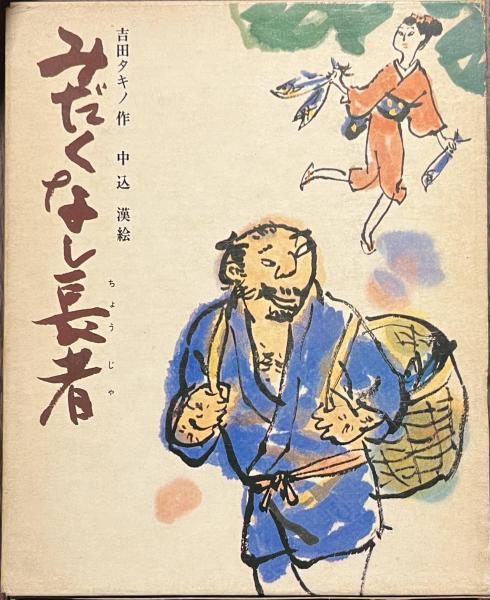 吉田タキノ作 中込 漢絵
みだくなし長者
ちょうじゃ